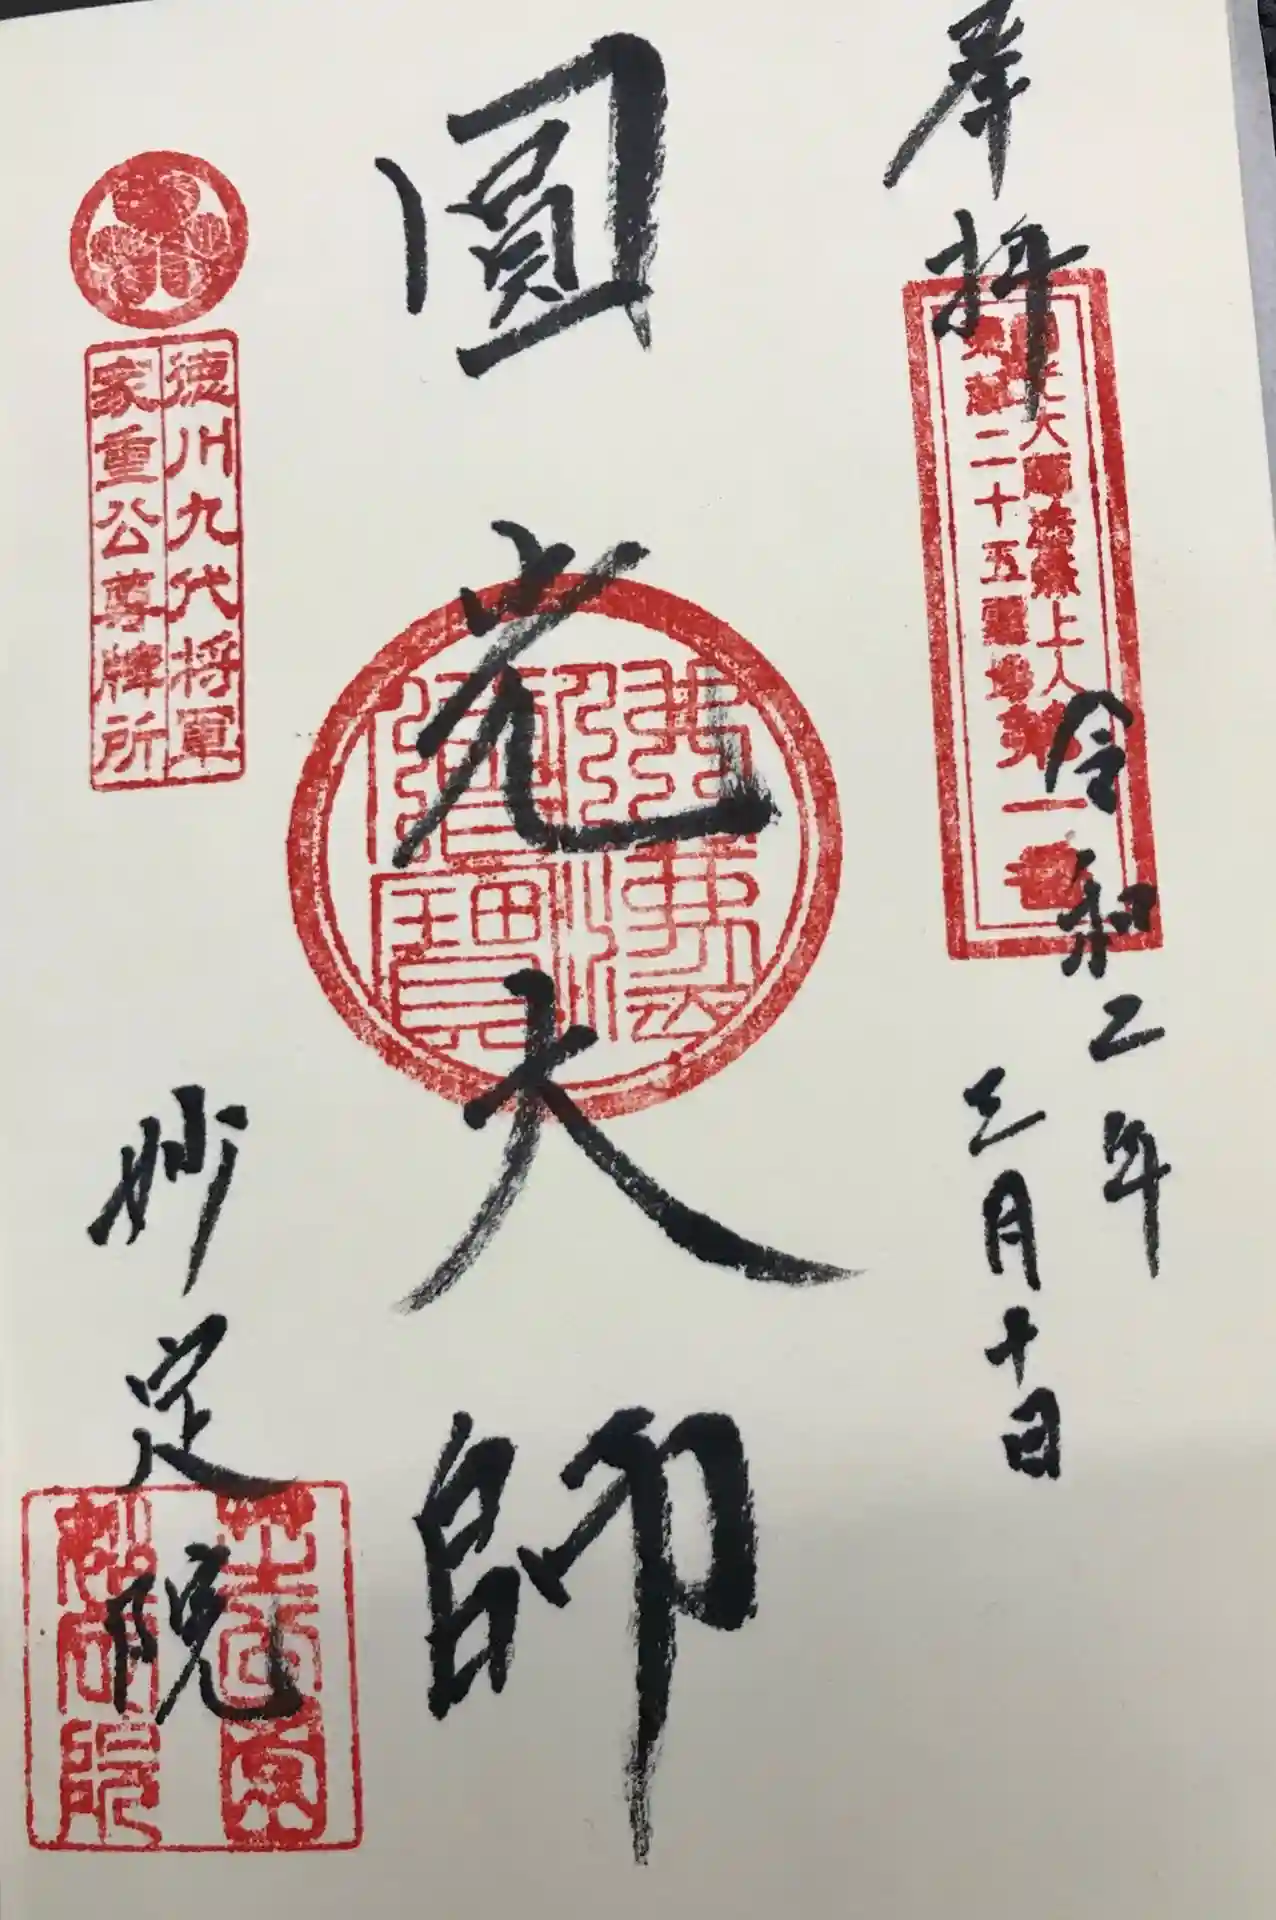 奉拝
圓光大師法然上人
東京二十五霊場第一番
令和二年
三月十日
圓光大師
佛法僧寶
徳川九代将軍
家重公尊牌所
妙定院
妙定院